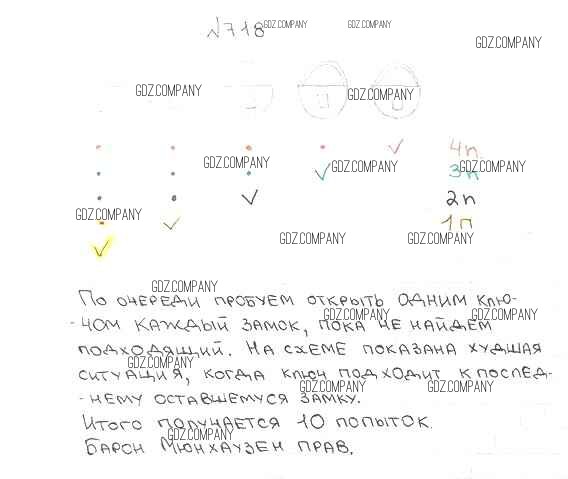 №718
GDZ.COMPANY GDZ.COMPANY
GDZ.COMPANY
GDZ.COMPANY GDZ.COMPANY
4п.
GDZ.COMPANY GDZ.COMPANY 3п GDZ.COMPANY
2п
GDZ.COMPANY
1п
GDZ.COMPANY GDZ.COMPANY
GDZ.COMPANY
По очереди пробуем открыть одним клю-
GDZ.COMPANY GDZ.COMPANY
-чом каждый замок, пока не найдём
подходящий. На схеме показана худшая
GDZ.COMPANY
ситуация, когда ключ подходит к послед-
GDZ.COMPANY GDZ.COMPANY
-нему оставшемуся замку.
Итого получается 10 попыток.
GDZ.COMPANY
Барон Мюнхаузен прав.